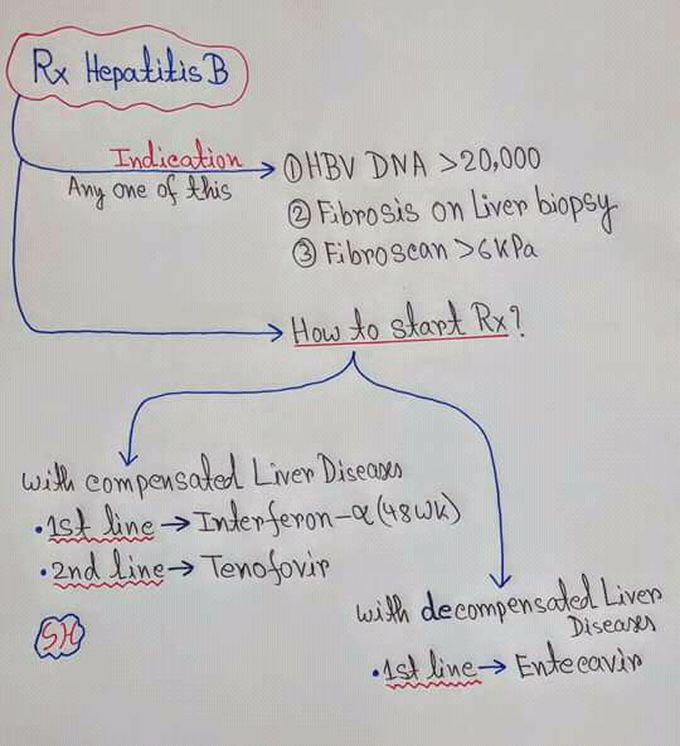 Rx Hepatitis B
Indication
Any one of this
① HBV DNA >20,000
② Fibrosis on Liver biopsy
③ Fibroscan >6KPa
How to start Rx?
with compensated Liver Diseases
• 1st line → Interferon-α (48WK)
• 2nd line → Tenofovir
SH
with decompensated Liver
Diseases
• 1st line → Entecavir